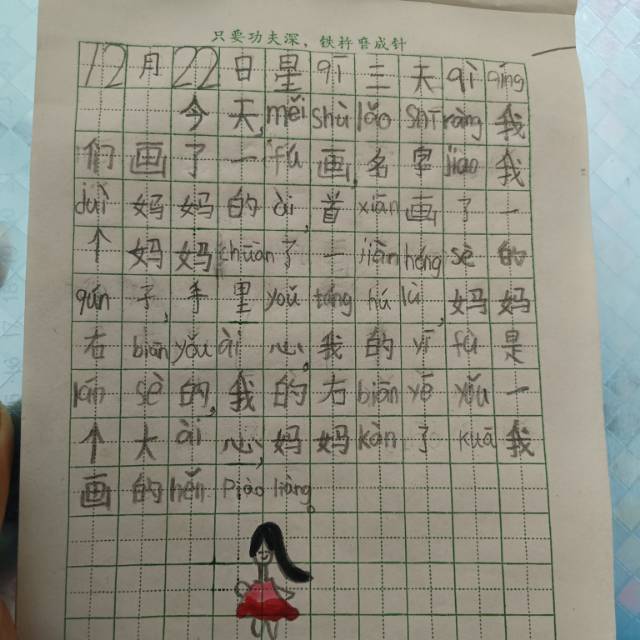 只要功夫深，铁杵磨成针
12月22日星qī三天qì qíng
今天,měi shù lǎo shī ràng我
们画了一fú画,名字jiào我
duì妈妈的ài,首xiān画了一
个妈妈chuān了一jiàn hóng sè的
qún子,手里yǒu táng hú lù,妈妈
右biān yǒu ài心。我的yī fu是
lán sè的,我的右biān yě yǒu一
个大ài心,妈妈kàn了kuā我
画的hěn piào liàng。